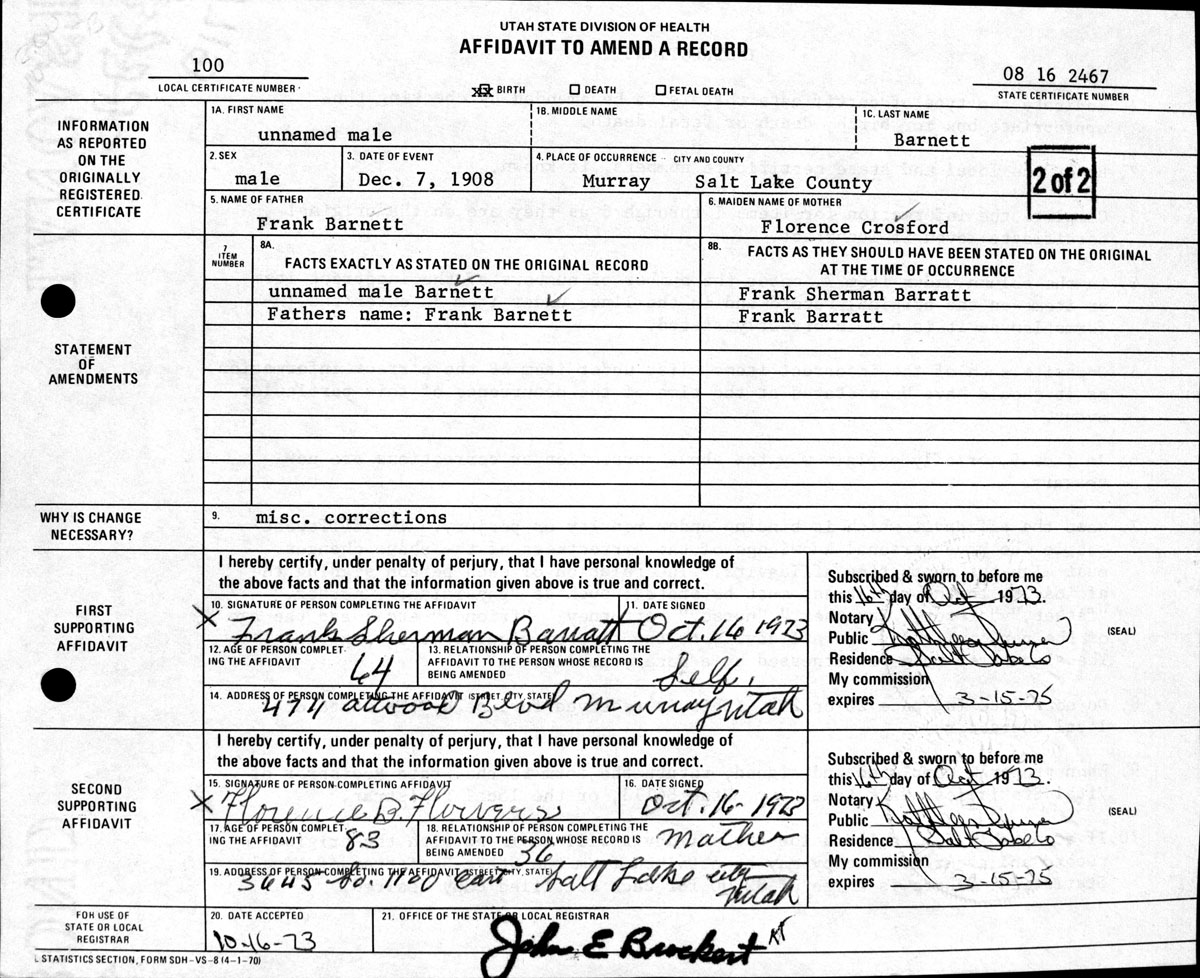 UTAH STATE DIVISION OF HEALTH
AFFIDAVIT TO AMEND A RECORD
100
LOCAL CERTIFICATE NUMBER
XX BIRTH DEATH FETAL DEATH
08 16 2467
STATE CERTIFICATE NUMBER
INFORMATION AS REPORTED ON THE ORIGINALLY REGISTERED CERTIFICATE
1A. FIRST NAME
unnamed male
1B. MIDDLE NAME
1C. LAST NAME
Barnett
2. SEX
male
3. DATE OF EVENT
Dec. 7, 1908
4. PLACE OF OCCURRENCE - CITY AND COUNTY
Murray Salt Lake County
2 of 2
5. NAME OF FATHER
Frank Barnett
6. MAIDEN NAME OF MOTHER
Florence Crosford
STATEMENT OF AMENDMENTS
7 ITEM NUMBER
8A.
FACTS EXACTLY AS STATED ON THE ORIGINAL RECORD
8B. FACTS AS THEY SHOULD HAVE BEEN STATED ON THE ORIGINAL
AT THE TIME OF OCCURRENCE
unnamed male Barnett
Frank Sherman Barratt
Fathers name: Frank Barnett
Frank Barratt
WHY IS CHANGE NECESSARY?
9. misc. corrections
FIRST SUPPORTING AFFIDAVIT
I hereby certify, under penalty of perjury, that I have personal knowledge of
the above facts and that the information given above is true and correct.
10. SIGNATURE OF PERSON COMPLETING THE AFFIDAVIT
X Frank Sherman Barratt
11. DATE SIGNED
Oct. 16 1973
12. AGE OF PERSON COMPLET-
ING THE AFFIDAVIT
64
13. RELATIONSHIP OF PERSON COMPLETING THE
AFFIDAVIT TO THE PERSON WHOSE RECORD IS
BEING AMENDED
Self.
14. ADDRESS OF PERSON COMPLETING THE AFFIDAVIT (STREET, CITY, STATE)
474 atwood Blvd Murray, Utah
Subscribed & sworn to before me
this 16th day of Oct 1973
Notary
Public
(SEAL)
Residence Salt Lake Co
My commission
expires 3-15-75
SECOND SUPPORTING AFFIDAVIT
I hereby certify, under penalty of perjury, that I have personal knowledge of
the above facts and that the information given above is true and correct.
15. SIGNATURE OF PERSON COMPLETING AFFIDAVIT
X Florence B. Flowers
16. DATE SIGNED
Oct. 16 - 1973
17. AGE OF PERSON COMPLET-
ING THE AFFIDAVIT
83
18. RELATIONSHIP OF PERSON COMPLETING THE
AFFIDAVIT TO THE PERSON WHOSE RECORD IS
BEING AMENDED
36
Mother
19. ADDRESS OF PERSON COMPLETING THE AFFIDAVIT (STREET, CITY, STATE)
3645 So. 1100 East Salt Lake city
Utah
Subscribed & sworn to before me
this 16th day of Oct 1973.
Notary
Public
(SEAL)
Residence Salt Lake Co
My commission
expires 3-15-75
FOR USE OF STATE OR LOCAL REGISTRAR
20. DATE ACCEPTED
10-16-73
21. OFFICE OF THE STATE OR LOCAL REGISTRAR
John E Brockert KT
STATISTICS SECTION, FORM SDH-VS-8 (4-1-70)